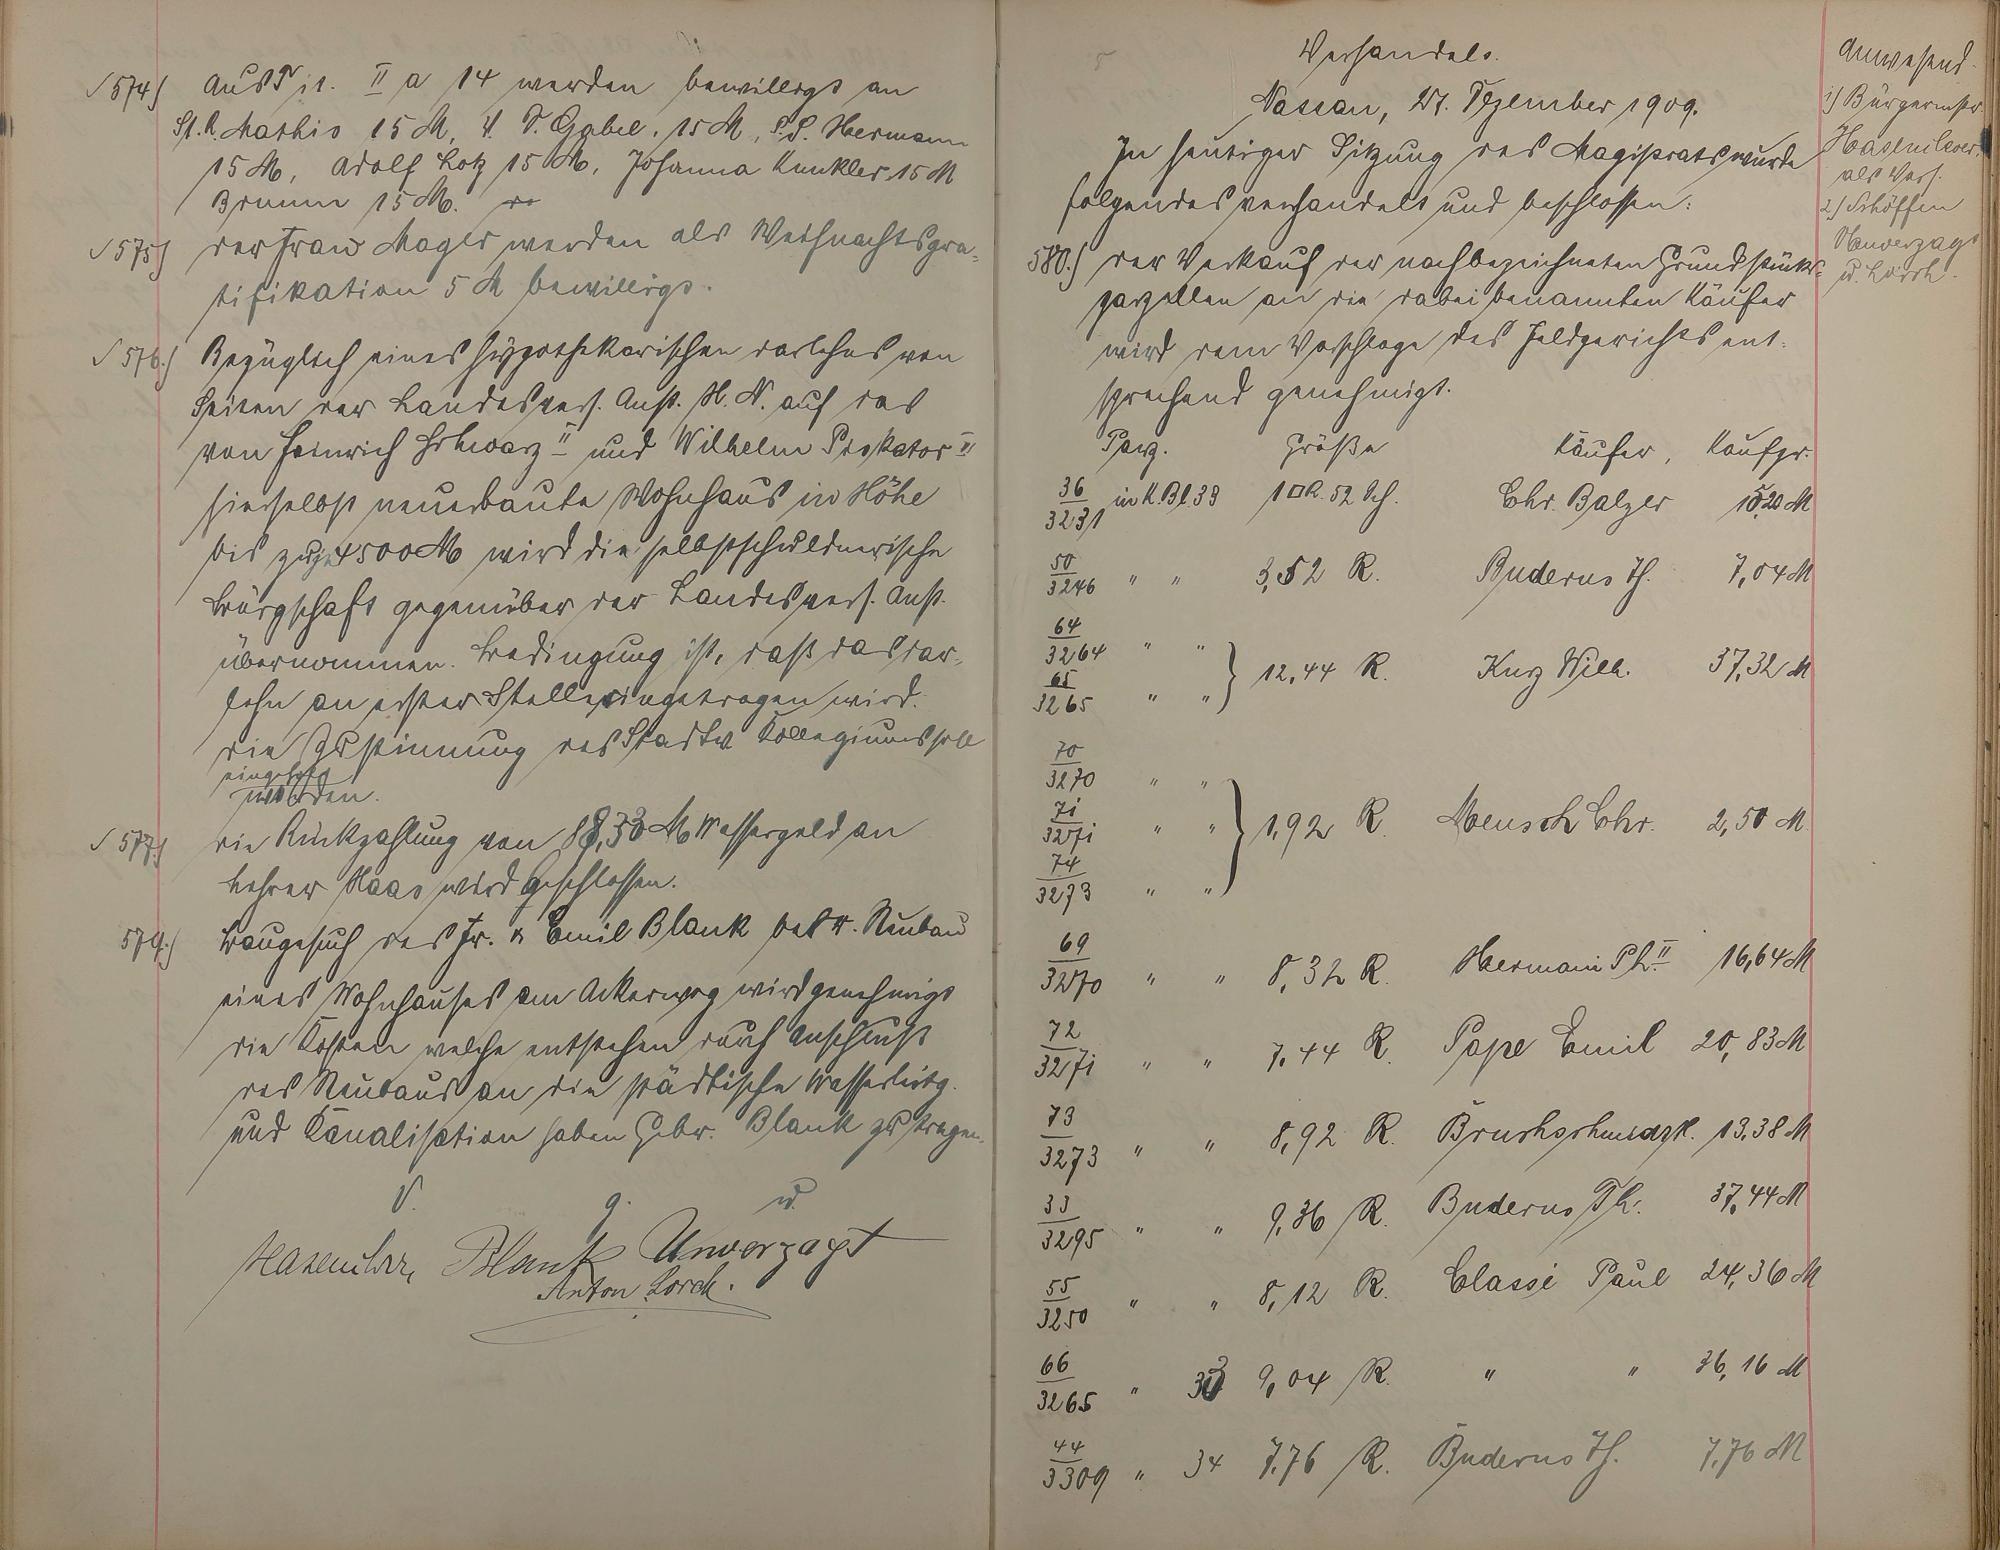 574) Aus Tit. II a 14 werden bewilligt an
St. A. Mathis 15 M, H. D. Gabel, 15 M, P. S. Hermann
15 M, Adolf Lotz 15 M, Johanna Kunkler 15 M
Brumm 15 M.
575) der Frau Mager werden als Weihnachtsgra-
tifikation 5 M bewilligt.
576.) Bezüglich eines hypothekarischen Darlehns von
Seiten der Landesvers. Anst. H. N. auf das
von Heinrich Schwarz II und Wilhelm Piskator II
hierselbst neuerbaute Wohnhaus in Höhe
bis zu 4500 M wird die selbstschuldnerische
Bürgschaft gegenüber der Landesvers. Anst.
übernommen. Bedingung ist, daß das Dar-
lehn an erster Stelle eingetragen wird.
die Zustimmung des Stadtv Kollegiums soll
eingeholt
werden.
577) die Rückzahlung von 88,33 M Wassergeld an
Lehrer Haas wird beschlossen.
579.) Baugesuch des Fr. & Emil Blank betr. Neubau
eines Wohnhauses am Ackerweg wird genehmigt
die Kosten welche entstehen durch Anschluß
des Neubaus an die städtische Wasserleitg.
und Kanalisation haben Gebr. Blank zu tragen.
V. g. u.
Hasenclever, Blank Unverzagt
Anton Lorch.
Verhandelt.
Nassau, 27. Dezember 1909.
In heutiger Sitzung des Magistrats wurde
folgendes verhandelt und beschlossen:
Anwesend.
1) Bürgermstr.
Hasenclever,
als Vors.
2) Schöffen
Unverzagt
u. Lorch.
580.) der Verkauf der nachbezeichneten Grundstücks-
parzellen an die dabei benannten Käufer
wird dem Vorschlage des Feldgerichts ent-
sprechend genehmigt.
Parz. Größe Käufer, Kaufpr.
36/3231 in K. Bl. 33 1 □R. 52 Sch. Chr. Balzer 15,20 M
50/3246 " " 3,52 R. Buderus Th. 7,04 M
64/3264 " "
65/3265 " " } 12,44 R. Kurz Wilh. 37,32 M
70/3270 " "
71/3271 " " } 1,92 R. Mensch Chr. 2,50 M
74/3273 " "
69/3270 " " 8,32 R. Hermani Ph. II 16,64 M
72/3271 " " 7,44 R. Pape Emil 20,83 M
73/3273 " " 8,92 R. 13,38 M
33/3295 " " 9,36 R. Buderus Th. 37,44 M
55/3250 " " 8,12 R. Classi Paul 24,36 M
66/3265 " 33 9,04 R. " " 36,16 M
44/3309 " 34 7,76 R. Buderus Th. 7,76 M